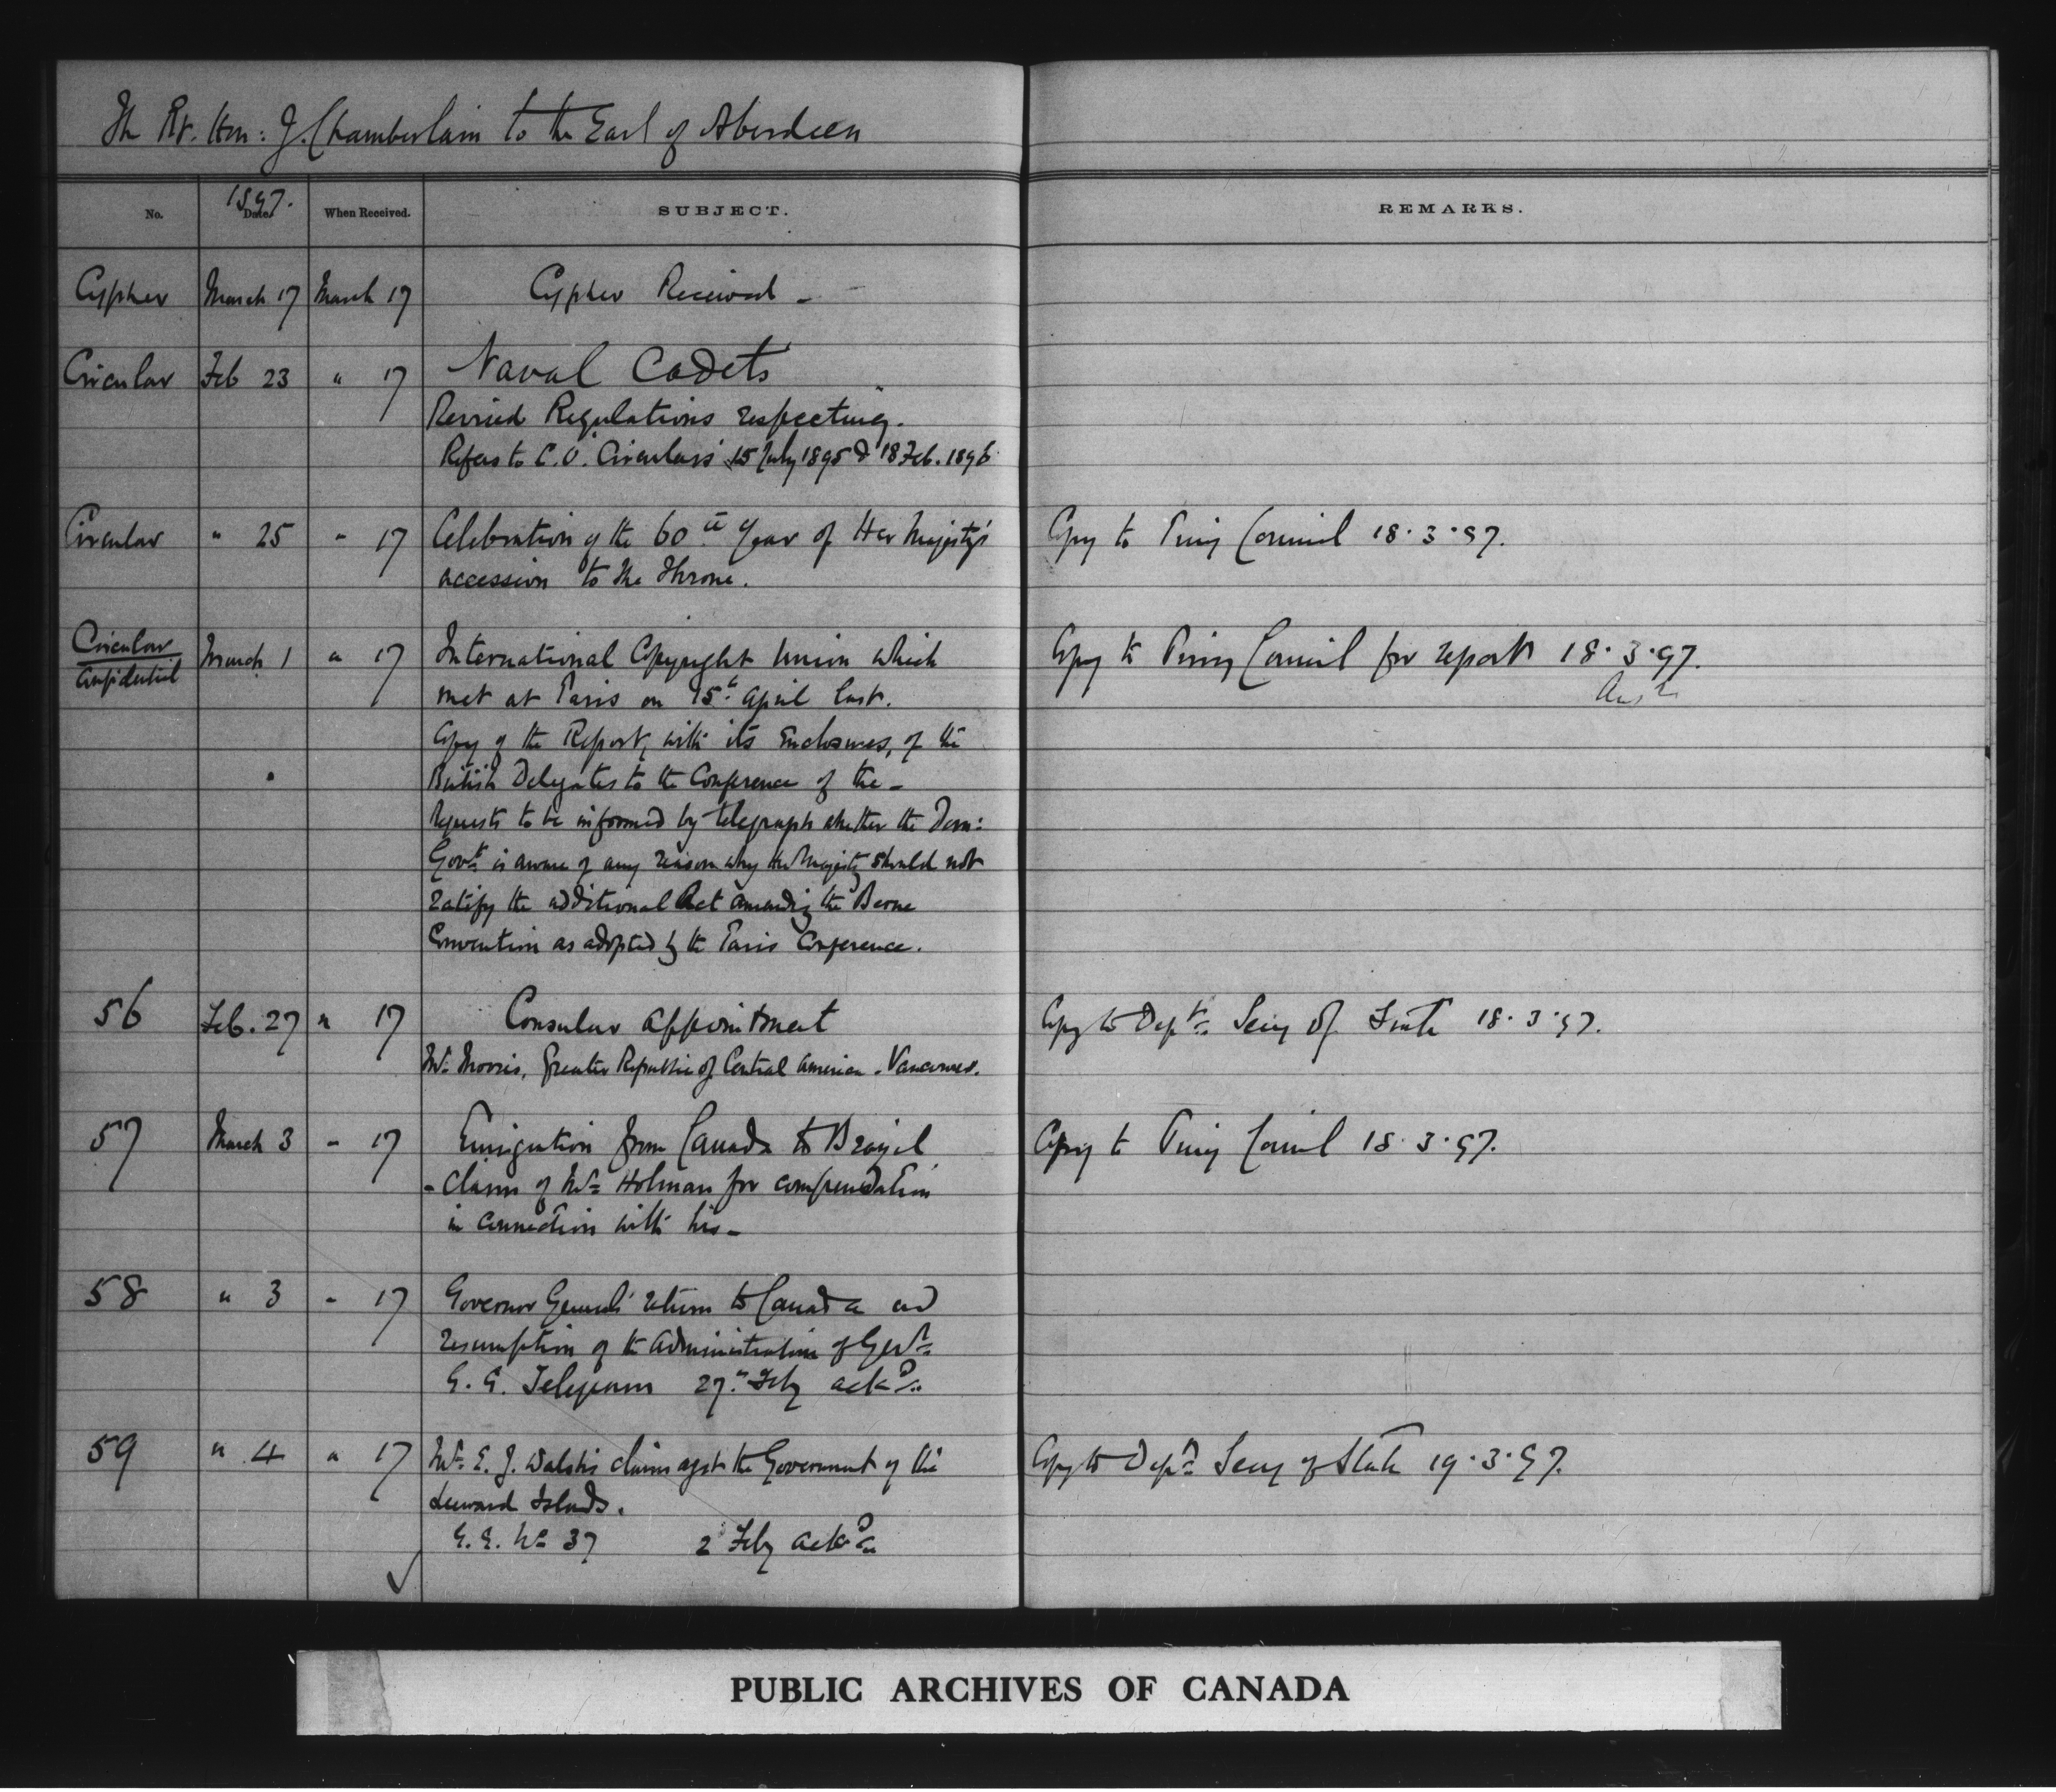 The Rt. Hon: J. Chamberlain to the Earl of Aberdeen
No. 1897. Date. When Received. SUBJECT. REMARKS.
Cypher March 17 March 17 Cypher Received –
Circular Feb 23 " 17 Naval Cadets
Revised Regulations respecting.
Refers to C.O. Circulars 15 July 1895 & 18 Feb. 1896
Circular " 25 " 17 Celebration of the 60th Year of Her Majesty's Copy to Privy Council 18.3.97.
accession to the Throne.
Circular March 1 " 17 International Copyright Union which Copy to Privy Council for report 18.3.97.
Confidential met at Paris on 15th April last.
Copy of the Report, with its Enclosures, of the
British Delegates to the Conference of the –
Requests to be informed by telegraph whether the Dom:
Govt. is aware of any reason why Her Majesty should not
ratify the additional Act amending the Berne
Convention as adopted by the Paris Conference.
56 Feb. 27 " 17 Consular Appointment Copy to Dept. Secy of State 18.3.97.
Mr. Morris, Greater Republic of Central America - Vancouver.
57 March 3 " 17 Emigration from Canada to Brazil Copy to Privy Council 18.3.97.
- Claim of Mr. Holman for compensation
in connection with his –
58 " 3 " 17 Governor General's return to Canada and
resumption of the administration of Govt.
G.G. Telegram 27th Feby ackd.
59 " 4 " 17 Mr. E. J. Walsh's claim agst the Government of the Copy to Dept. Secy of State 19.3.97.
Leeward Islands.
G.G. No 37 2 Feby ackd.
PUBLIC ARCHIVES OF CANADA